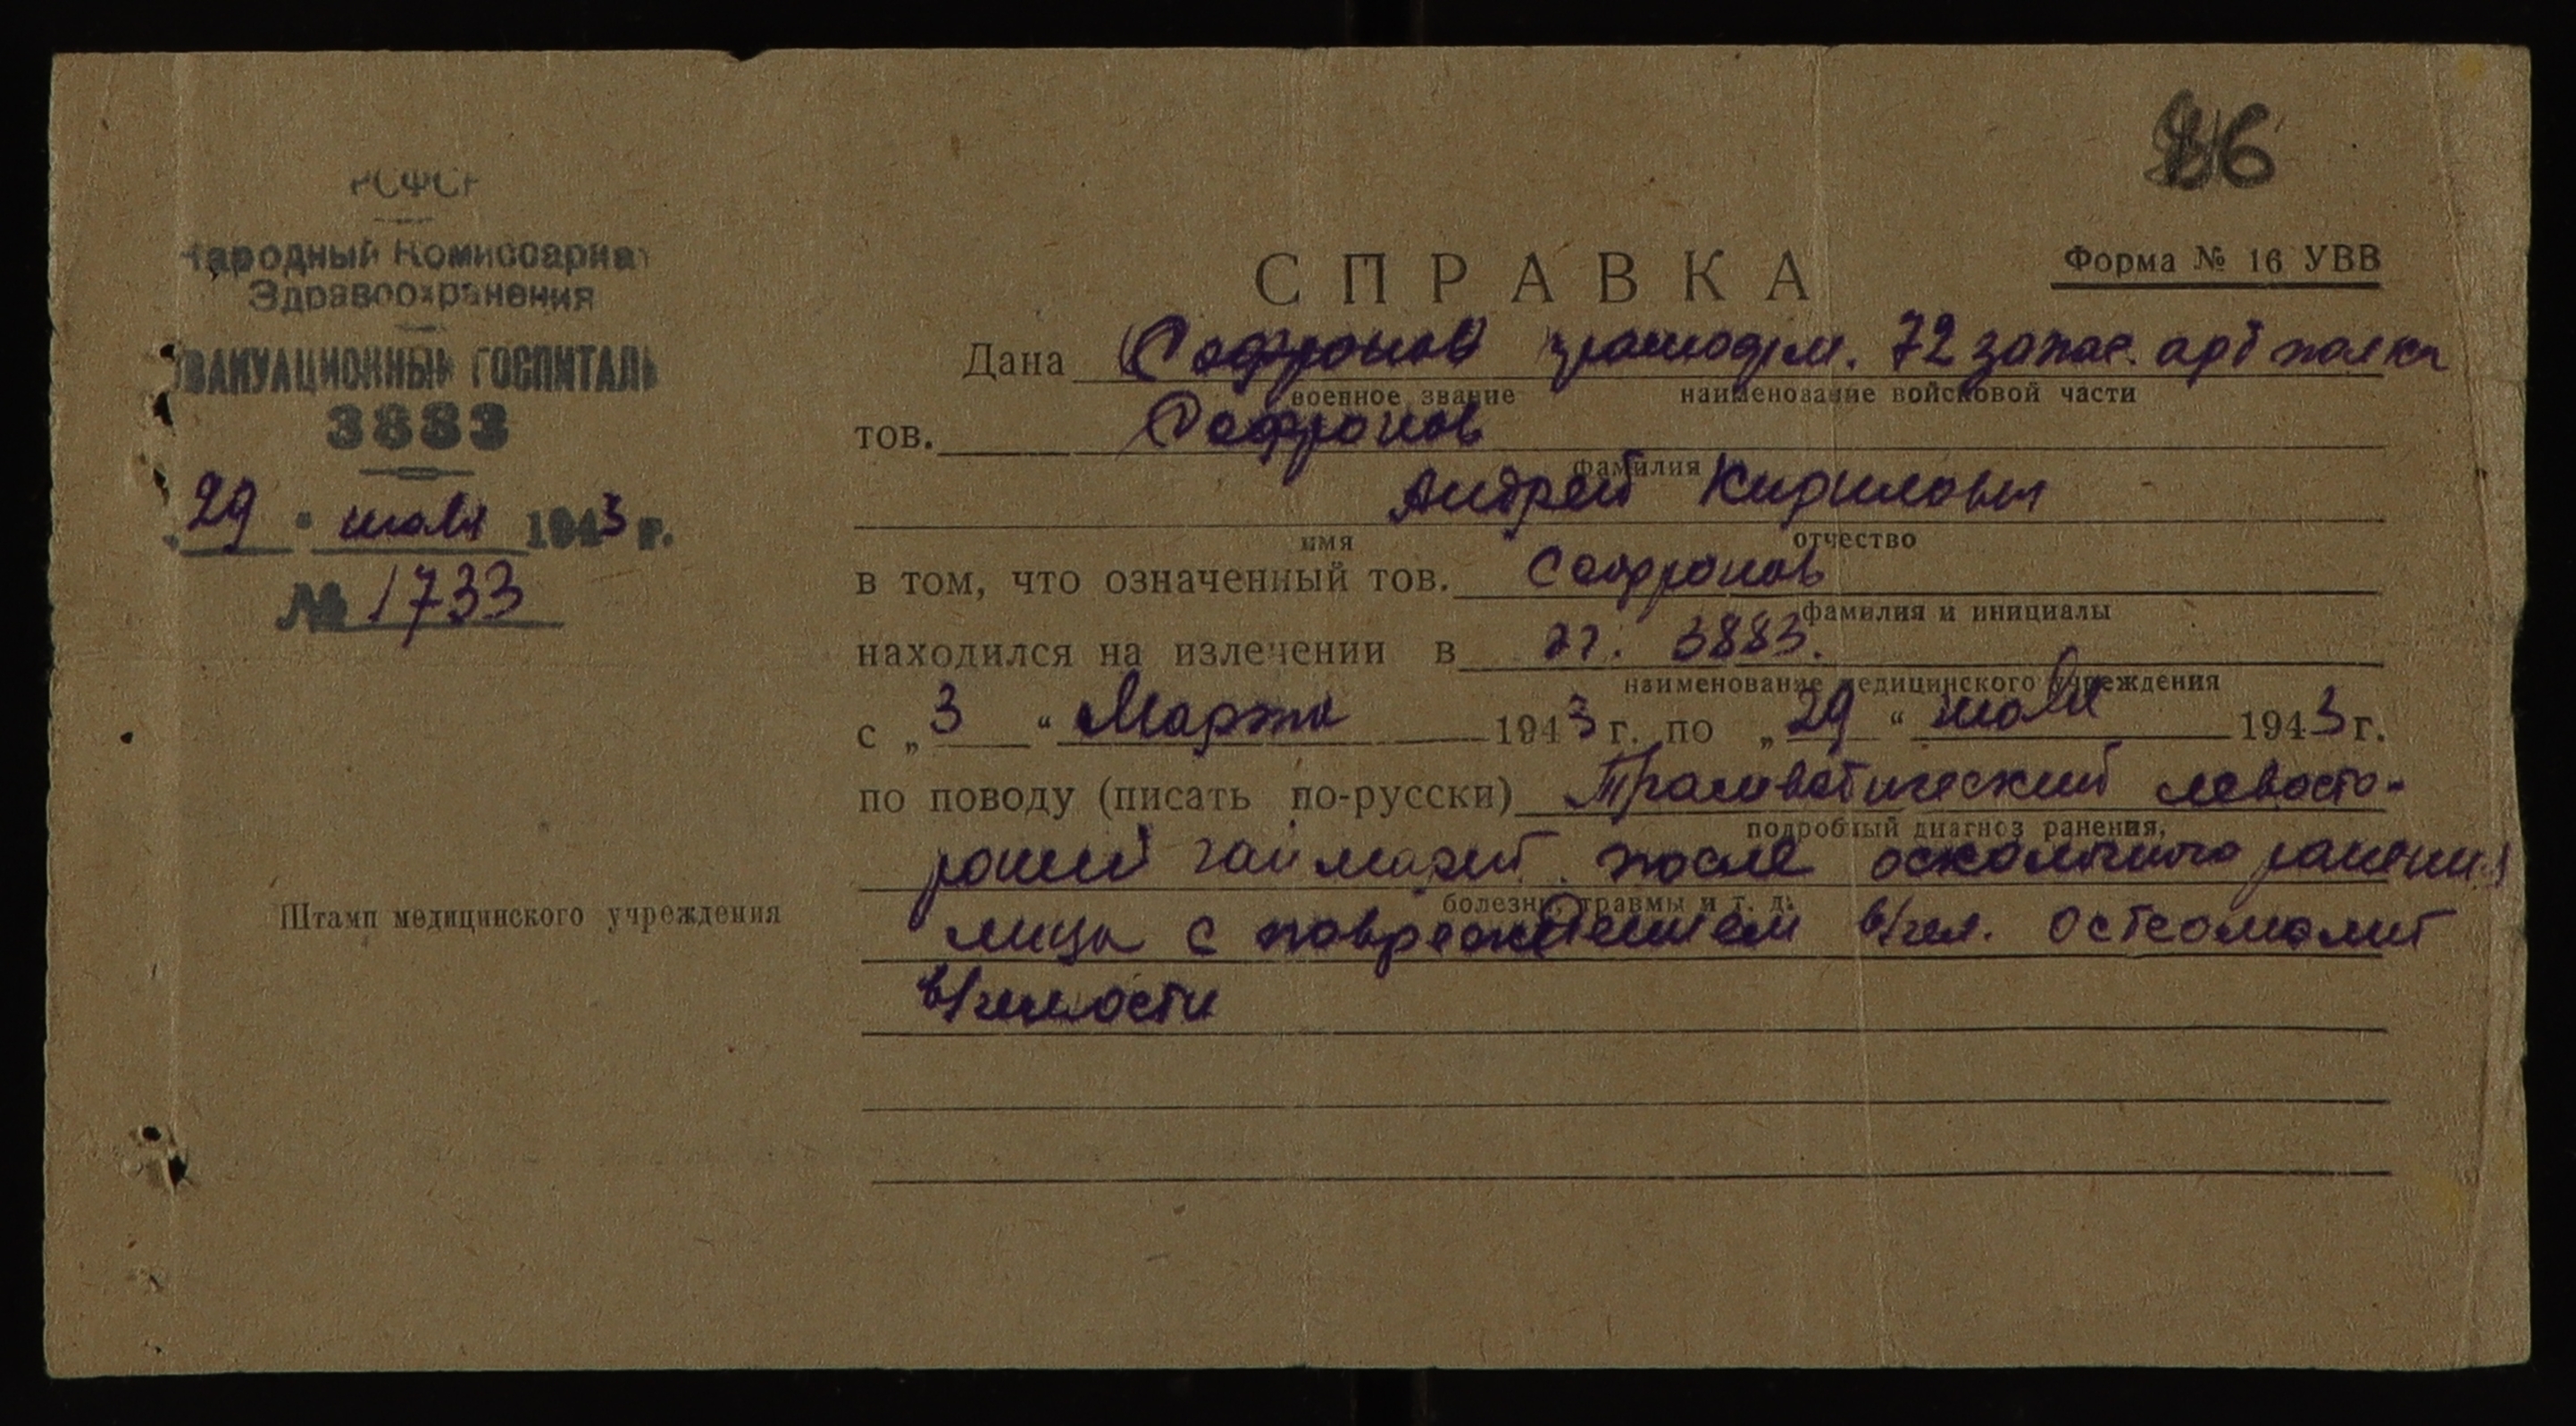 86
РСФСР
Народный Комиссариат
Здравоохранения
ЭВАКУАЦИОННЫЙ ГОСПИТАЛЬ
3883
29 " июля 1943 г.
№ 1733
Штамп медицинского учреждения
Форма № 16 УВВ
СПРАВКА
Дана Сафронов 72 запас. арт полка
военное звание наименование войсковой части
тов. Сафронов
фамилия
Андрей Кирилович
имя отчество
в том, что означенный тов. Сафронов
фамилия и инициалы
находился на излечении в 3883.
наименование медицинского учреждения
с „ 3 “ Марта 1943 г. по „ 29 “ июля 1943 г.
по поводу (писать по-русски) Травматический левосто-
подробный диагноз ранения,
роний гайморит после осколочного ранения
болезни, травмы и т. д.
лица с повреждением в/чел. остеомиелит
в/челюсти